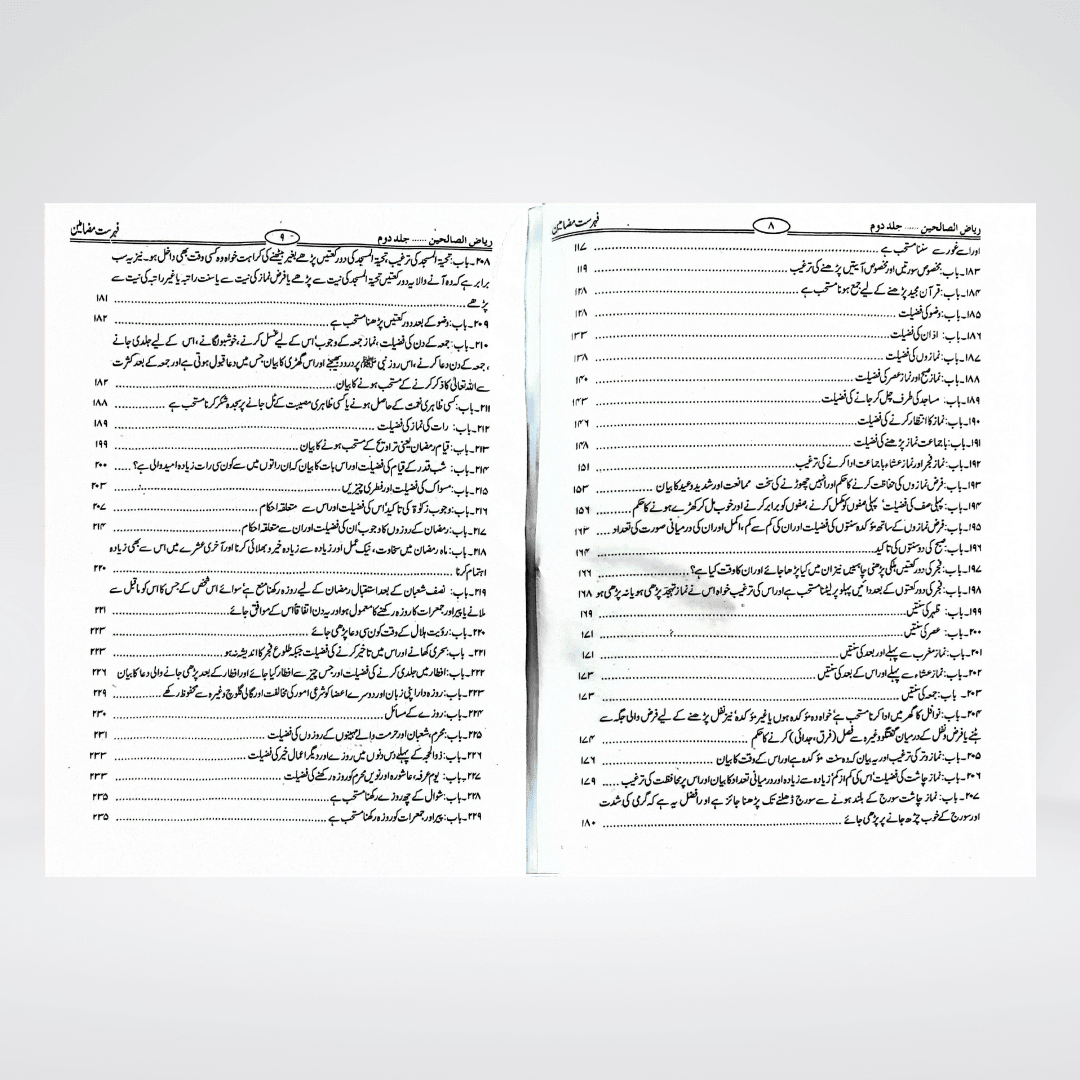 ریاض الصالحین ...... جلد دوم ۸ فہرست مضامین
اور اسے غور سے سننا مستحب ہے ۱۱۷
۱۸۳۔باب: مخصوص سورتیں اور مخصوص آیتیں پڑھنے کی ترغیب ۱۱۹
۱۸۴۔باب: قرآن مجید پڑھنے کے لیے جمع ہونا مستحب ہے ۱۲۸
۱۸۵۔باب: وضو کی فضیلت ۱۲۸
۱۸۶۔باب: اذان کی فضیلت ۱۳۳
۱۸۷۔باب: نمازوں کی فضیلت ۱۳۸
۱۸۸۔باب: نماز صبح اور نماز عصر کی فضیلت ۱۴۰
۱۸۹۔باب: مساجد کی طرف چل کر جانے کی فضیلت ۱۴۳
۱۹۰۔باب: نماز کا انتظار کرنے کی فضیلت ۱۴۶
۱۹۱۔باب: باجماعت نماز پڑھنے کی فضیلت ۱۴۸
۱۹۲۔باب: نماز فجر اور نماز عشاء باجماعت ادا کرنے کی ترغیب ۱۵۱
۱۹۳۔باب: فرض نمازوں کی حفاظت کرنے کا حکم اور انہیں چھوڑنے کی سخت ممانعت اور شدید وعید کا بیان ۱۵۳
۱۹۴۔باب: پہلی صف کی فضیلت' پہلی صفوں کو مکمل کرنے' صفوں کو برابر کرنے اور خوب مل کر کھڑے ہونے کا حکم ۱۵۶
۱۹۵۔باب: فرض نمازوں کے ساتھ مؤکدہ سنتوں کی فضیلت اور ان کی کم سے کم، اکمل اور ان کی درمیانی صورت کی تعداد ۱۶۳
۱۹۶۔باب: صبح کی دو سنتوں کی تاکید ۱۶۴
۱۹۷۔باب: فجر کی دو رکعتیں ہلکی پڑھنی چاہییں نیز ان میں کیا پڑھا جائے اور ان کا وقت کیا ہے؟ ۱۶۶
۱۹۸۔باب: فجر کی دو رکعتوں کے بعد دائیں پہلو پر لیٹنا مستحب ہے اور اس کی ترغیب خواہ اس نے نماز تہجد پڑھی ہو یا نہ پڑھی ہو ۱۶۸
۱۹۹۔باب: ظہر کی سنتیں ۱۶۹
۲۰۰۔باب: عصر کی سنتیں ۱۷۱
۲۰۱۔باب: نماز مغرب سے پہلے اور بعد کی سنتیں ۱۷۱
۲۰۲۔باب: نماز عشاء سے پہلے اور اس کے بعد کی سنتیں ۱۷۳
۲۰۳۔باب: جمعہ کی سنتیں ۱۷۳
۲۰۴۔باب: نوافل کا گھر میں ادا کرنا مستحب ہے' خواہ وہ مؤکدہ ہوں یا غیر مؤکدہ' نیز نفل پڑھنے کے لیے فرض والی جگہ سے
ہٹنے یا فرض و نفل کے درمیان گفتگو وغیرہ سے فصل (فرق، جدائی) کرنے کا حکم ۱۷۴
۲۰۵۔باب: نماز وتر کی ترغیب اور یہ بیان کہ وہ سنت مؤکدہ ہے اور اس کے وقت کا بیان ۱۷۶
۲۰۶۔باب: نماز چاشت کی فضیلت' اس کی کم از کم' زیادہ سے زیادہ اور درمیانی تعداد کا بیان اور اس پر محافظت کی ترغیب ۱۷۹
۲۰۷۔باب: نماز چاشت سورج کے بلند ہونے سے سورج ڈھلنے تک پڑھنا جائز ہے اور افضل یہ ہے کہ گرمی کی شدت
اور سورج کے خوب چڑھ جانے پر پڑھی جائے ۱۸۰
ریاض الصالحین ...... جلد دوم ۹ فہرست مضامین
۲۰۸۔باب: تحیۃ المسجد کی ترغیب' تحیۃ المسجد کی دو رکعتیں پڑھے بغیر بیٹھنے کی کراہت خواہ وہ کسی وقت بھی داخل ہو۔ نیز یہ سب
برابر ہے کہ وہ آنے والا یہ دو رکعتیں تحیۃ المسجد کی نیت سے پڑھے یا فرض نماز کی نیت سے یا سنت راتبہ یا غیر راتبہ کی نیت سے
پڑھے ۱۸۱
۲۰۹۔باب: وضو کے بعد دو رکعتیں پڑھنا مستحب ہے ۱۸۲
۲۱۰۔باب: جمعہ کے دن کی فضیلت، نماز جمعہ کے وجوب' اس کے لیے غسل کرنے، خوشبو لگانے، اس کے لیے جلدی جانے
، جمعہ کے دن دعا کرنے، اس روز نبی ﷺ پر درود بھیجنے اور اس گھڑی کا بیان جس میں دعا قبول ہوتی ہے اور جمعہ کے بعد کثرت
سے اللہ تعالیٰ کا ذکر کرنے کے مستحب ہونے کا بیان ۱۸۲
۲۱۱۔باب: کسی ظاہری نعمت کے حاصل ہونے یا کسی ظاہری مصیبت کے ٹل جانے پر سجدہ شکر کرنا مستحب ہے ۱۸۸
۲۱۲۔باب: رات کی نماز کی فضیلت ۱۸۹
۲۱۳۔باب: قیام رمضان یعنی تراویح کے مستحب ہونے کا بیان ۱۹۹
۲۱۴۔باب: شب قدر کے قیام کی فضیلت اور اس بات کا بیان کہ ان راتوں میں سے کون سی رات زیادہ امید والی ہے؟ ۲۰۰
۲۱۵۔باب: مسواک کی فضیلت اور فطری چیزیں ۲۰۳
۲۱۶۔باب: وجوب زکوٰۃ کی تاکید' اس کی فضیلت اور اس سے متعلقہ احکام ۲۰۷
۲۱۷۔باب: رمضان کے روزوں کا وجوب' ان کی فضیلت اور ان سے متعلقہ احکام ۲۱۴
۲۱۸۔باب: ماہ رمضان میں سخاوت، نیک عمل اور زیادہ سے زیادہ خیر و بھلائی کرنا اور آخری عشرے میں اس سے بھی زیادہ
اہتمام کرنا ۲۲۰
۲۱۹۔باب: نصف شعبان کے بعد استقبال رمضان کے لیے روزہ رکھنا منع ہے' سوائے اس شخص کے جس کا اس کو ماقبل سے
ملانے یا پیر اور جمعرات کا روزہ رکھنے کا معمول ہو اور یہ دن اتفاقا اس کے موافق آ جائے ۲۲۱
۲۲۰۔باب: رؤیت ہلال کے وقت کون سی دعا پڑھی جائے ۲۲۳
۲۲۱۔باب: سحری کھانے اور اس میں تاخیر کرنے کی فضیلت جبکہ طلوع فجر کا اندیشہ نہ ہو ۲۲۳
۲۲۲۔باب: افطار میں جلدی کرنے کی فضیلت اور جس چیز سے افطار کیا جائے اور افطار کے بعد پڑھی جانے والی دعا کا بیان ۲۲۶
۲۲۳۔باب: روزہ دار اپنی زبان اور دوسرے اعضا کو شرعی امور کی مخالفت اور گالی گلوچ وغیرہ سے محفوظ رکھے ۲۲۹
۲۲۴۔باب: روزے کے مسائل ۲۳۰
۲۲۵۔باب: محرم، شعبان اور حرمت والے مہینوں کے روزوں کی فضیلت ۲۳۱
۲۲۶۔باب: ذوالحجہ کے پہلے دس دنوں میں روزے اور دیگر اعمال خیر کی فضیلت ۲۳۳
۲۲۷۔باب: یوم عرفہ، عاشورہ اور نویں محرم کو روزہ رکھنے کی فضیلت ۲۳۳
۲۲۸۔باب: شوال کے چھ روزے رکھنا مستحب ہے ۲۳۵
۲۲۹۔باب: پیر اور جمعرات کو روزہ رکھنا مستحب ہے ۲۳۵